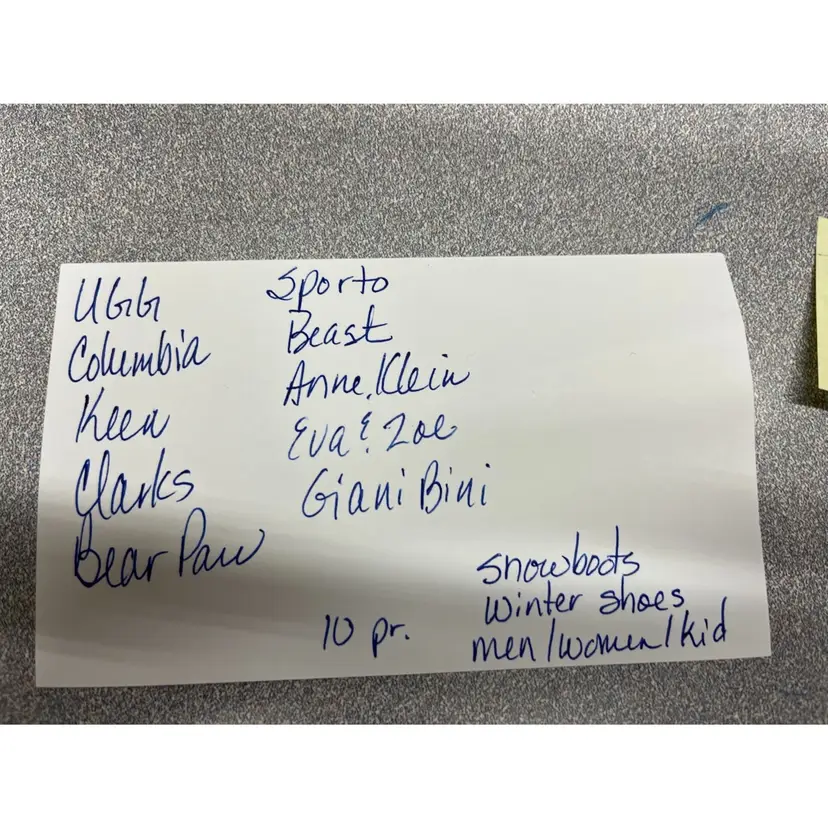 UGG
Columbia
Keen
Clarks
Bear Paw
Sporto
Beast
Anne Klein
Eva & Zoe
Giani Bini
10 pr.
snowboots
winter shoes
men/women/kid